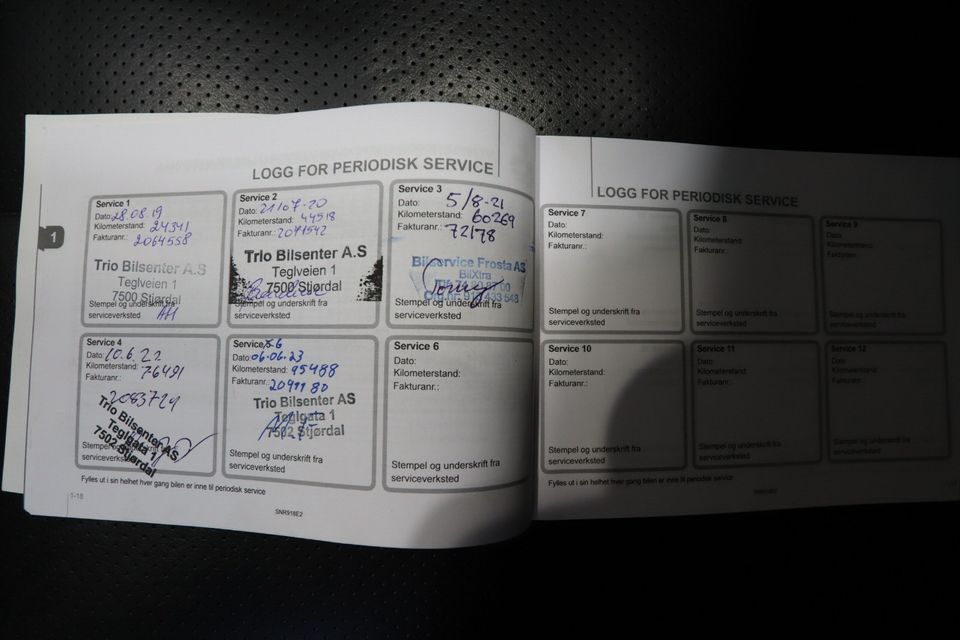 LOGG FOR PERIODISK SERVICE
Service 1
Dato: 28.08.19
Kilometerstand: 24341
Fakturanr.: 2064558
Trio Bilsenter A.S
Teglveien 1
7500 Stjørdal
Stempel og underskrift fra
serviceverksted
Service 2
Dato: 21.07-20
Kilometerstand: 44518
Fakturanr.: 2071542
Trio Bilsenter A.S
Teglveien 1
7500 Stjørdal
Stempel og underskrift fra
serviceverksted
Service 3
Dato: 5/8-21
Kilometerstand: 60269
Fakturanr.: 72178
Bilservice Frosta AS
BilXtra
Stempel og underskrift fra
serviceverksted
Service 4
Dato: 10.6.22
Kilometerstand: 76491
Fakturanr.:
2083724
Trio Bilsenter AS
Teglgata 1
7502 Stjørdal
Stempel og underskrift fra
serviceverksted
Service
Dato: 06.06.23
Kilometerstand: 95488
Fakturanr.: 2091180
Trio Bilsenter AS
Teglgata 1
7502 Stjørdal
Stempel og underskrift fra
serviceverksted
Service 6
Dato:
Kilometerstand:
Fakturanr.:
Stempel og underskrift fra
serviceverksted
Fylles ut i sin helhet hver gang bilen er inne til periodisk service
1-18
SNR918E2
1
LOGG FOR PERIODISK SERVICE
Service 7
Dato:
Kilometerstand:
Fakturanr.:
Stempel og underskrift fra
serviceverksted
Service 8
Dato:
Kilometerstand:
Fakturanr.:
Stempel og underskrift fra
serviceverksted
Service 9
Dato:
Kilometerstand:
Fakturanr.:
Stempel og underskrift fra
serviceverksted
Service 10
Dato:
Kilometerstand:
Fakturanr.:
Stempel og underskrift fra
serviceverksted
Service 11
Dato:
Kilometerstand:
Fakturanr.:
Stempel og underskrift fra
serviceverksted
Service 12
Dato:
Kilometerstand:
Fakturanr.:
Stempel og underskrift fra
serviceverksted
Fylles ut i sin helhet hver gang bilen er inne til periodisk service